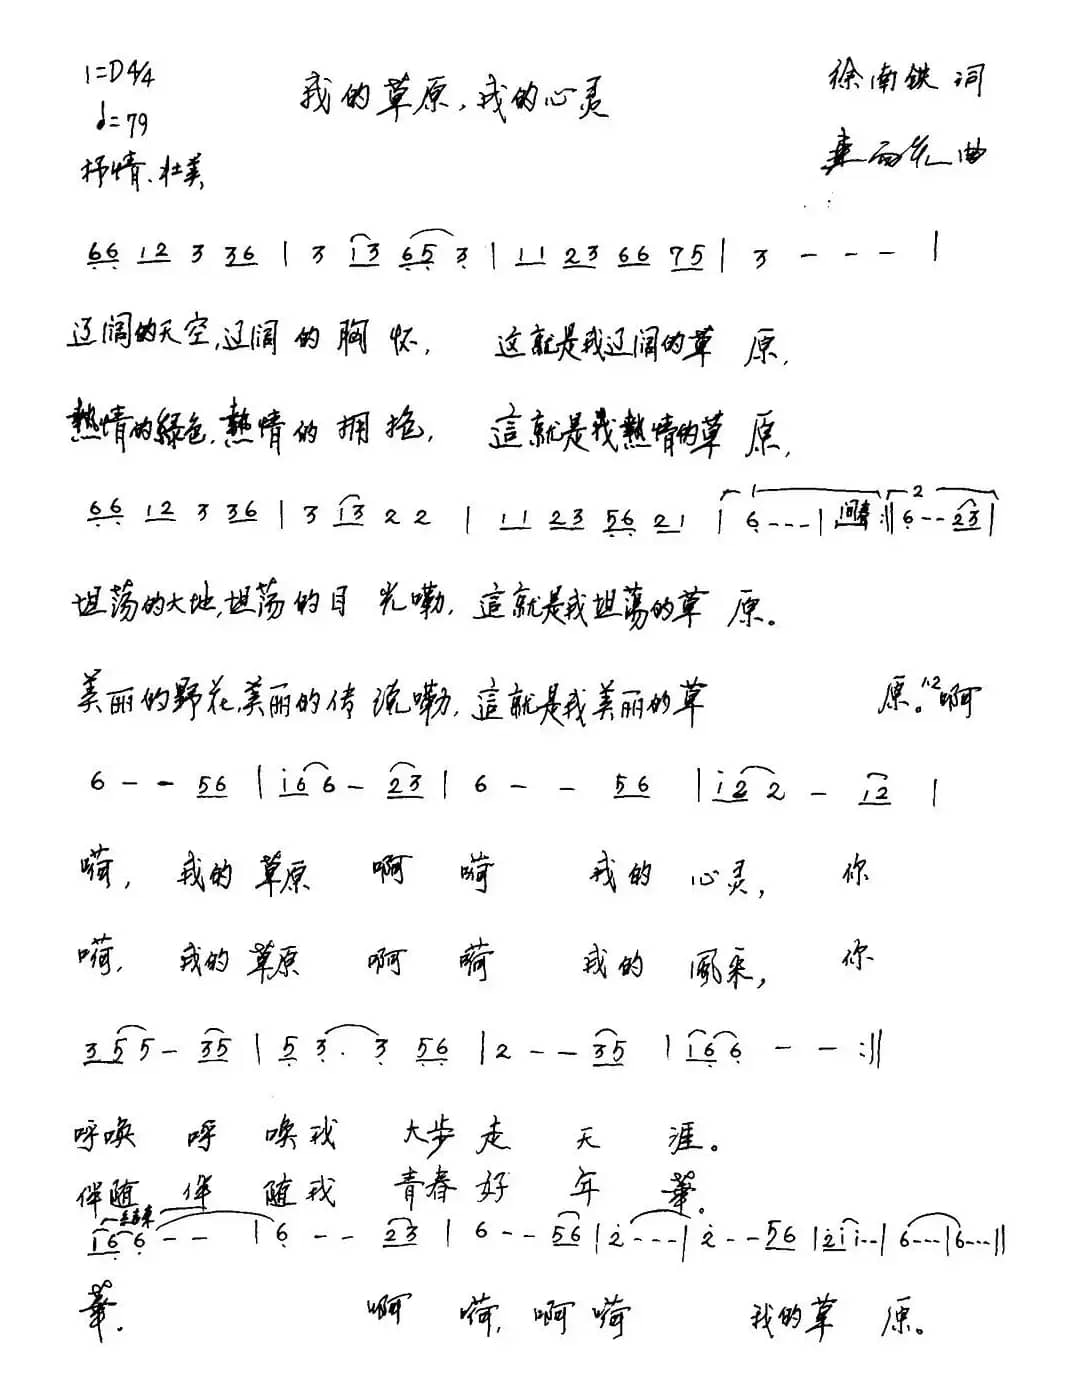 1=D 4/4 我的草原,我的心灵 徐南铁 词
♩=79 曲
抒情、壮美
66 12 3 36 | 3 13 65 3 | 11 23 66 75 | 3 - - - |
辽阔的天空,辽阔的胸怀, 这就是我辽阔的草原,
熱情的緑色,熱情的拥抱, 這就是我熱情的草原,
66 12 3 36 | 3 13 2 2 | 11 23 56 21 | 1 6--- | 间奏 :|| 2 6--23 |
坦荡的大地,坦荡的目光嘞,這就是我坦蕩的草原。
美丽的野花,美丽的传说嘞,這就是我美丽的草 原。1.2.啊
6 - - 56 | i6 6 - 23 | 6 - - 56 | i2 2 - 12 |
嗬, 我的草原 啊 嗬 我的 心灵, 你
嗬, 我的草原 啊 嗬 我的 風采, 你
35 5 - 35 | 5 3 . 3 56 | 2 - - 35 | 16 6 - - :||
呼唤 呼 唤我 大步走 天 涯。
伴随 伴 随我 青春好 年 華。
结束
16 6 - - | 6 - - 23 | 6 - - 56 | 2 - - - | 2 - - 56 | 2i i - - | 6 - - - | 6 - - - ||
華. 啊 嗬,啊 嗬 我的草 原。